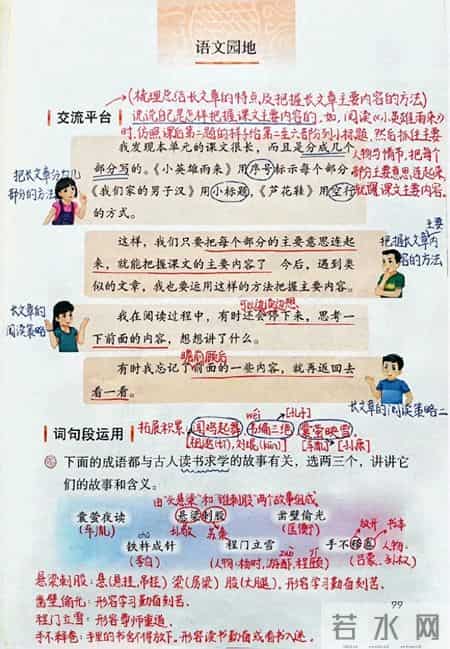 语文园地
(梳理总结长文章的特点,及把握长文章主要内容的方法)
交流平台
说说自己是怎样把握课文主要内容的。如,阅读《小英雄雨来》
时,仿照课后第二题的样子给第二至六部分列小标题,然后抓住主要
人物与情节,把每个
部分主要意思连起来,
就是课文主要内容。
我发现本单元的课文很长,而且是分成几个
部分写的。《小英雄雨来》用序号标示每个部分,
《我们家的男子汉》用小标题,《芦花鞋》用空行
的方式。
把长文章分为几
部分的方法
这样,我们只要把每个部分的主要意思连起
来,就能把握课文的主要内容了。今后,遇到类
似的文章,我也要运用这样的方法把握主要内容。
主要
把握长文章内
容的方法
可以边读边想
我在阅读过程中,有时还会停下来,思考一
下前面的内容,想想讲了什么。
长文章的
阅读策略一
瞻前顾后
有时我忘记了前面的一些内容,就再返回去
看一看。
长文章的阅读策略二
词句段运用
拓展积累
闻鸡起舞
wéi
韦编三绝
[孔子]
囊萤映雪
[祖逖(tì),刘琨(kūn)]
[车胤][孙康]
下面的成语都与古人读书求学的故事有关,选两三个,讲讲它
们的故事和含义。
由“头悬梁”和“锥刺股”两个故事组成
囊萤夜读
悬梁刺股
凿壁偷光
(车胤)
孙敬
苏秦
(匡衡)
放开
书本
铁杵成针
程门立雪
手不释卷
chǔ
(李白)
(人物:杨时,游酢,程颐)
zuò
yí
人物:
(吕蒙、孙权)
悬梁刺股:悬(悬挂,吊挂) 梁(房梁) 股(大腿)。形容学习勤奋刻苦。
凿壁偷光:形容学习勤奋刻苦。
程门立雪:形容尊师重道。
手不释卷:手里的书舍不得放下。形容读书勤奋或看书入迷。
99
若水网